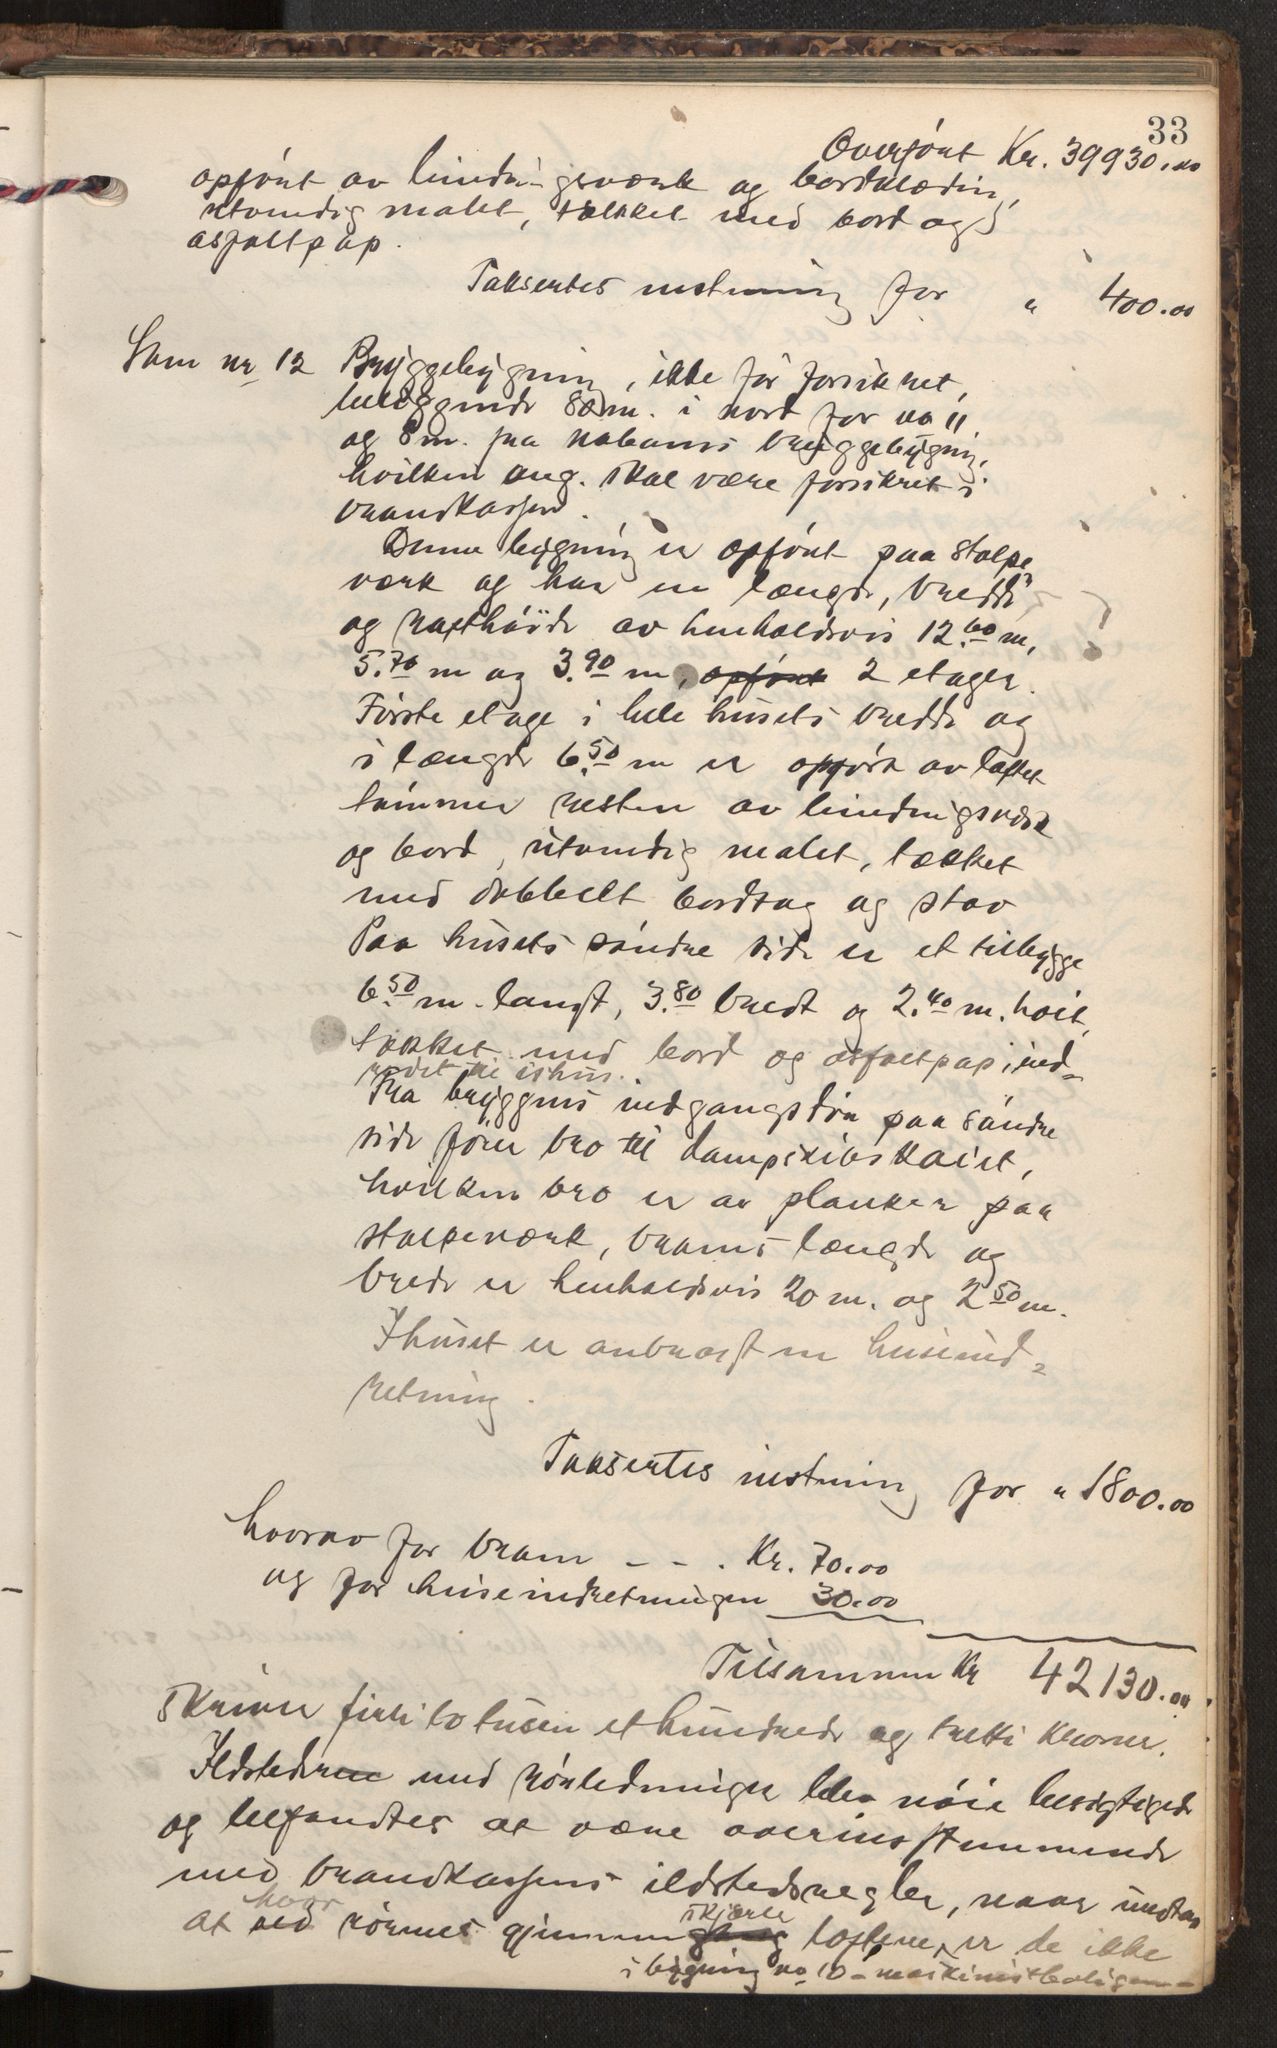 33
Overført Kr. 39930.00
opført av bindingsværk og bordklædin,
utvendig malet, tækket med bord og
asfaltpap.
Takseres uten murning for " 400.00
Som nr 12 Bryggebygning, ikke før forsikret,
beliggende 82 m. i nord for no 11
og 8 m. fra naboens bryggebygning,
hvilken ang. skal være forsikret i
brandkassen.
Denne bygning er opført paa stolpe
værk og har en længde, bredde
og rafthøide av henholdsvis 12.60 m,
5.70 m og 3.90 m, opført 2 etager.
Første etage i hele husets bredde og
i længde 6.50 m er opført av laftet
tømmer resten av bindingsværk
og bord, utvendig malet, tækket
med dobbelt bordtag og stav
Paa husets søndre side er et tilbygge
6.50 m. langt, 3.80 bredt og 2.40 m. høit,
tækket med bord og asfaltpap, ind-
redet til ishus.
Fra bryggens indgangsdør paa søndre
side fører bro til dampskibskaiet,
hvilken bro er av planker paa
stolpeværk, broens længde og
brede er henholdsvis 20 m. og 2.50 m.
I huset er anbragt en heiseind-
retning.
for " 1800.00
hvorav for broen - - . Kr. 70.00
og for heiseindretningen 30.00
Tilsammen Kr 42130.00
skriver firti to tusen et hundrede og tretti kroner.
Ildstederne med rørledninger blev nøie besigtiget
og befandtes at være overensstemmende
med brandkassens ildstedsregler, naar undtas
at hvor ved rørene gjennemskjærer gang loftene, er de ikke
i bygning no 10 - maskinistboligen -